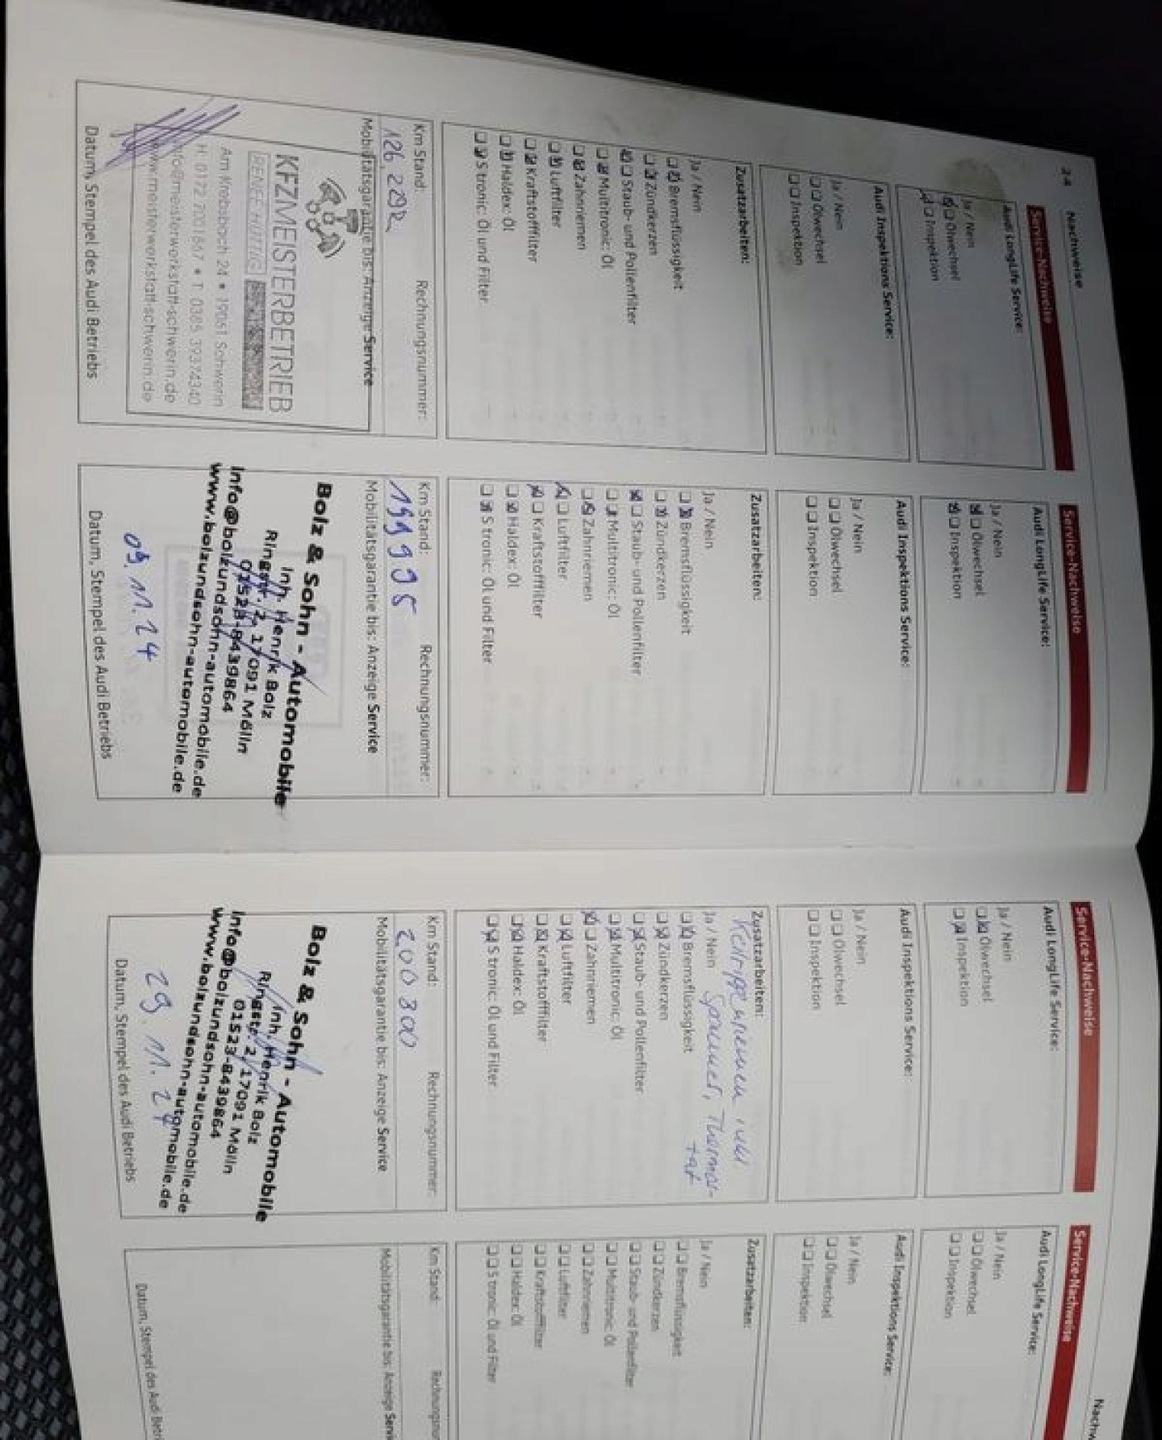 24 Nachweise
Service-Nachweise
Audi LongLife Service:
Ja / Nein
Ölwechsel
Inspektion
Audi Inspektions Service:
Ja / Nein
Ölwechsel
Inspektion
Zusatzarbeiten:
Ja / Nein
Bremsflüssigkeit
Zündkerzen
Staub- und Pollenfilter
Multitronic: Öl
Zahnriemen
Luftfilter
Kraftstofffilter
Haldex: Öl
S tronic: Öl und Filter
Km Stand: Rechnungsnummer:
126 292
Mobilitätsgarantie bis: Anzeige Service
KFZMEISTERBETRIEB
Am Krebsbach 24 • 19061 Schwerin
H: 0172 7001867 • T: 0385 39374340
info@meisterwerkstatt-schwerin.de
www.meisterwerkstatt-schwerin.de
Datum, Stempel des Audi Betriebs
Service-Nachweise
Audi LongLife Service:
Ja / Nein
Ölwechsel
Inspektion
Audi Inspektions Service:
Ja / Nein
Ölwechsel
Inspektion
Zusatzarbeiten:
Ja / Nein
Bremsflüssigkeit
Zündkerzen
Staub- und Pollenfilter
Multitronic: Öl
Zahnriemen
Luftfilter
Kraftstofffilter
Haldex: Öl
S tronic: Öl und Filter
Km Stand: Rechnungsnummer:
199995
Mobilitätsgarantie bis: Anzeige Service
Bolz & Sohn - Automobile
Inh. Henrik Bolz
Ringstr. 2, 17091 Mölln
01523-8439864
info@bolzundsohn-automobile.de
www.bolzundsohn-automobile.de
09.11.24
Datum, Stempel des Audi Betriebs
Service-Nachweise
Audi LongLife Service:
Ja / Nein
Ölwechsel
Inspektion
Audi Inspektions Service:
Ja / Nein
Ölwechsel
Inspektion
Zusatzarbeiten:
Keilrippenriemen inkl
Ja / Nein Spanner, Thermos-
tat
Bremsflüssigkeit
Zündkerzen
Staub- und Pollenfilter
Multitronic: Öl
Zahnriemen
Luftfilter
Kraftstofffilter
Haldex: Öl
S tronic: Öl und Filter
Km Stand: Rechnungsnummer:
200 300
Mobilitätsgarantie bis: Anzeige Service
Bolz & Sohn - Automobile
Inh. Henrik Bolz
Ringstr. 2, 17091 Mölln
01523-8439864
info@bolzundsohn-automobile.de
www.bolzundsohn-automobile.de
29.11.24
Datum, Stempel des Audi Betriebs
Nachw
Service-Nachweise
Audi LongLife Service:
Ja / Nein
Ölwechsel
Inspektion
Audi Inspektions Service:
Ja / Nein
Ölwechsel
Inspektion
Zusatzarbeiten:
Ja / Nein
Bremsflüssigkeit
Zündkerzen
Staub- und Pollenfilter
Multitronic: Öl
Zahnriemen
Luftfilter
Kraftstofffilter
Haldex: Öl
S tronic: Öl und Filter
Km Stand: Rechnungsnum
Mobilitätsgarantie bis: Anzeige Servi
Datum, Stempel des Audi Betri